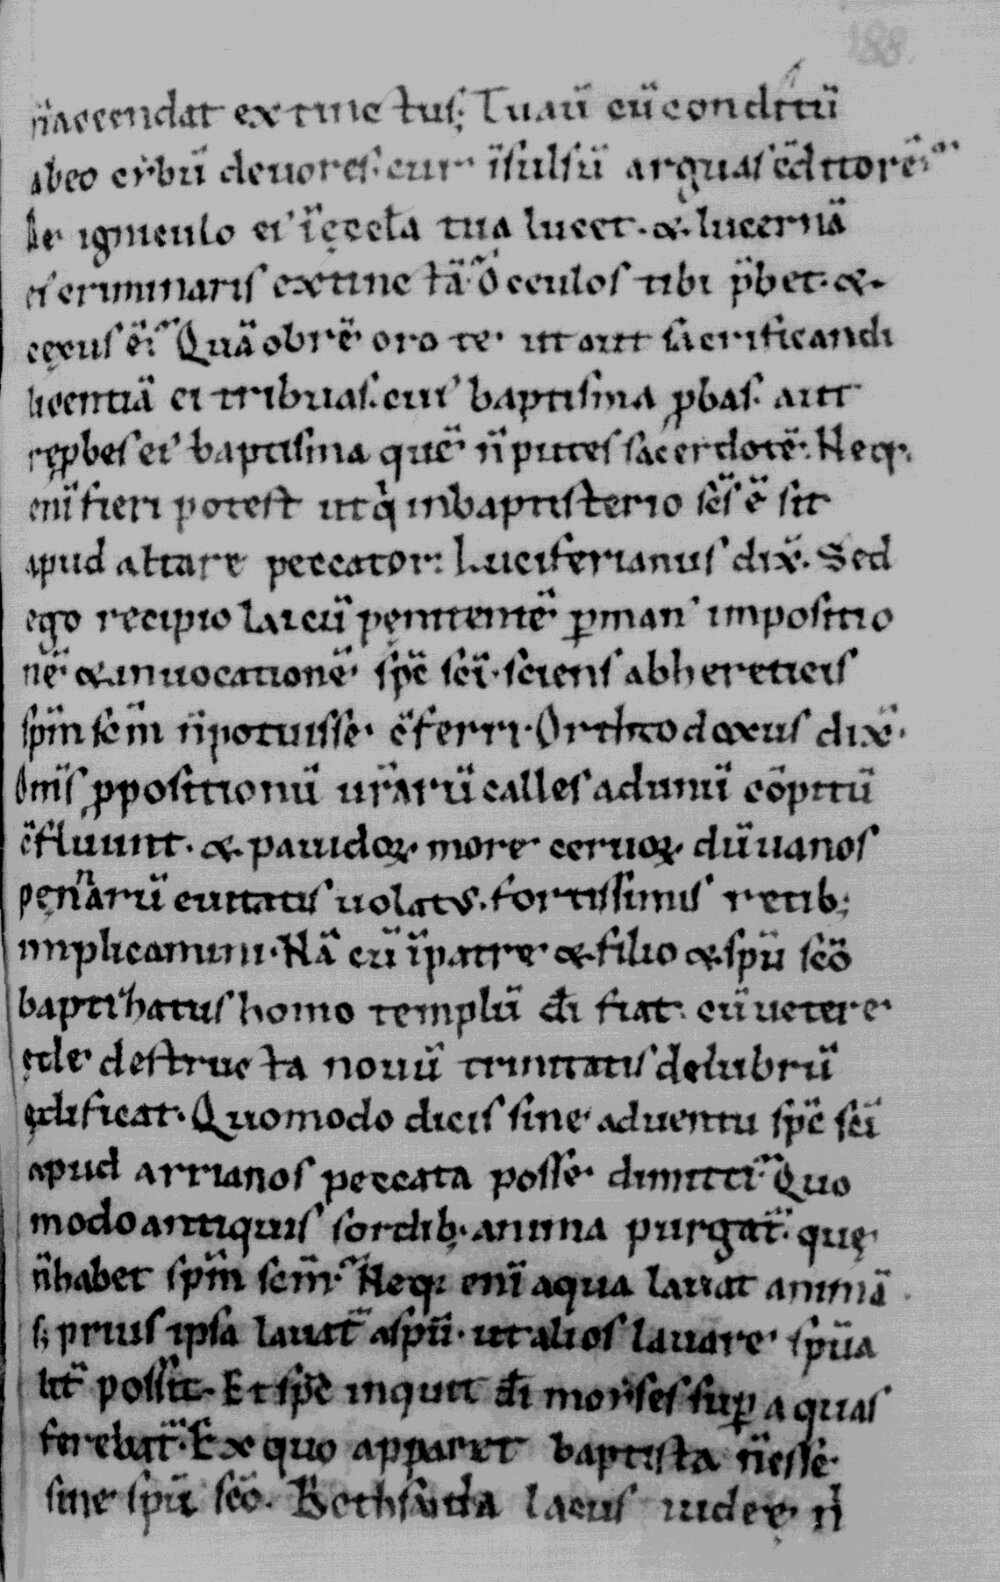 188.
n̄ accendat extinctus; Tu aū cū conditū
abeo cybū deuores. cur īsulsū arguas cditorē?
De igniculo ei' īcęcta tua lucet. & lucernā
ei' criminaris extinctā? Oculos tibi p̄bet. &
cęcus ē? Quā obrē oro te. ut aut sacrificandi
licentiā ei tribuas. cui' baptisma ꝓbas. aut
reꝓbes ei' baptisma quē n̄ putes sacerdotē. Neq;
enī fieri potest ut q̄ in baptisterio sc̄s ē sit
apud altare peccator. Luciferianus dix̄. Sed
ego recipio laicū pęnitentē ꝑ man' impositio
nē & inuocationē sp̄c sc̄i. sciens ab hereticis
sp̄m sc̄m n̄ potuisse c̄ferri. Orthodoxus dix̄.
Om̄s ꝓpositionū ur̄arū calles ad unū cōpitū
c̄fluunt. & pauidoꝝ more ceruoꝝ dū uanos
pęnnarū euitatis uolatus. fortissimis retib;
implicamini. Nā cū ī patre & filio & sp̄u sc̄o
baptizatus homo templū dī fiat. cū uetere
ęde destructa nouū trinitatis delubrū
ędificat. Quomodo dicis sine aduentu sp̄c sc̄i
apud arrianos peccata posse dimitti? Quo
modo antiquis sordib; anima purgat̄. quę
n̄ habet sp̄m sc̄m? Neq; enī aqua lauat animā
s; prius ipsa lauat̄ a sp̄u. ut alios lauare sp̄ua
lit̄ possit. Et sp̄c inquit dī moyses suꝑ aquas
ferebat̄. Ex quo apparet baptista n̄ esse
sine sp̄u sc̄o. Bethsaida lacus iudeę n̄